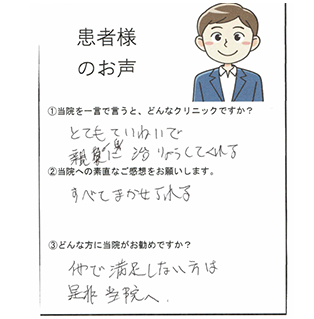 患者様
のお声
①当院を一言で言うと、どんなクリニックですか？
とてもていねいで
親身に 治りょうしてくれる
②当院への素直なご感想をお願いします。
すべてまかせられる
③どんな方に当院がお勧めですか？
他で満足しない方は
是非当院へ.